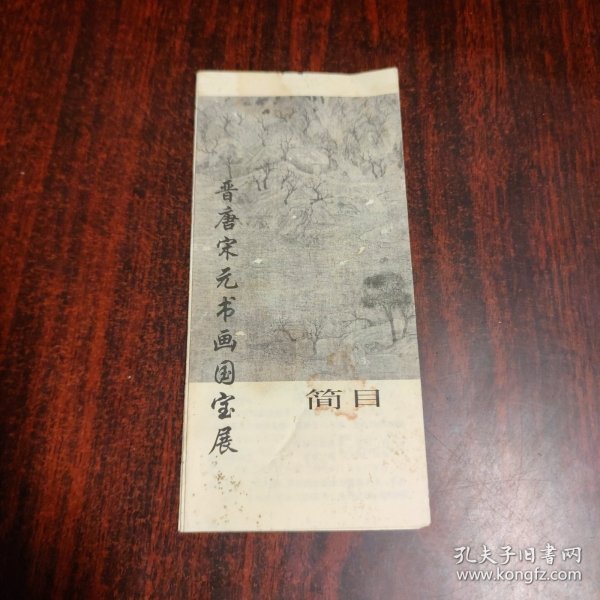 晋唐宋元书画国宝展
简目
孔夫子旧書网
www.kongfz.com